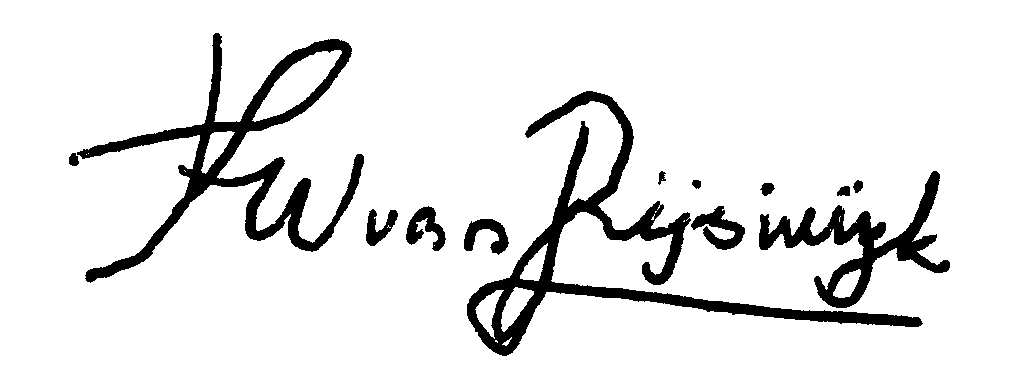 HW van Rijswijk